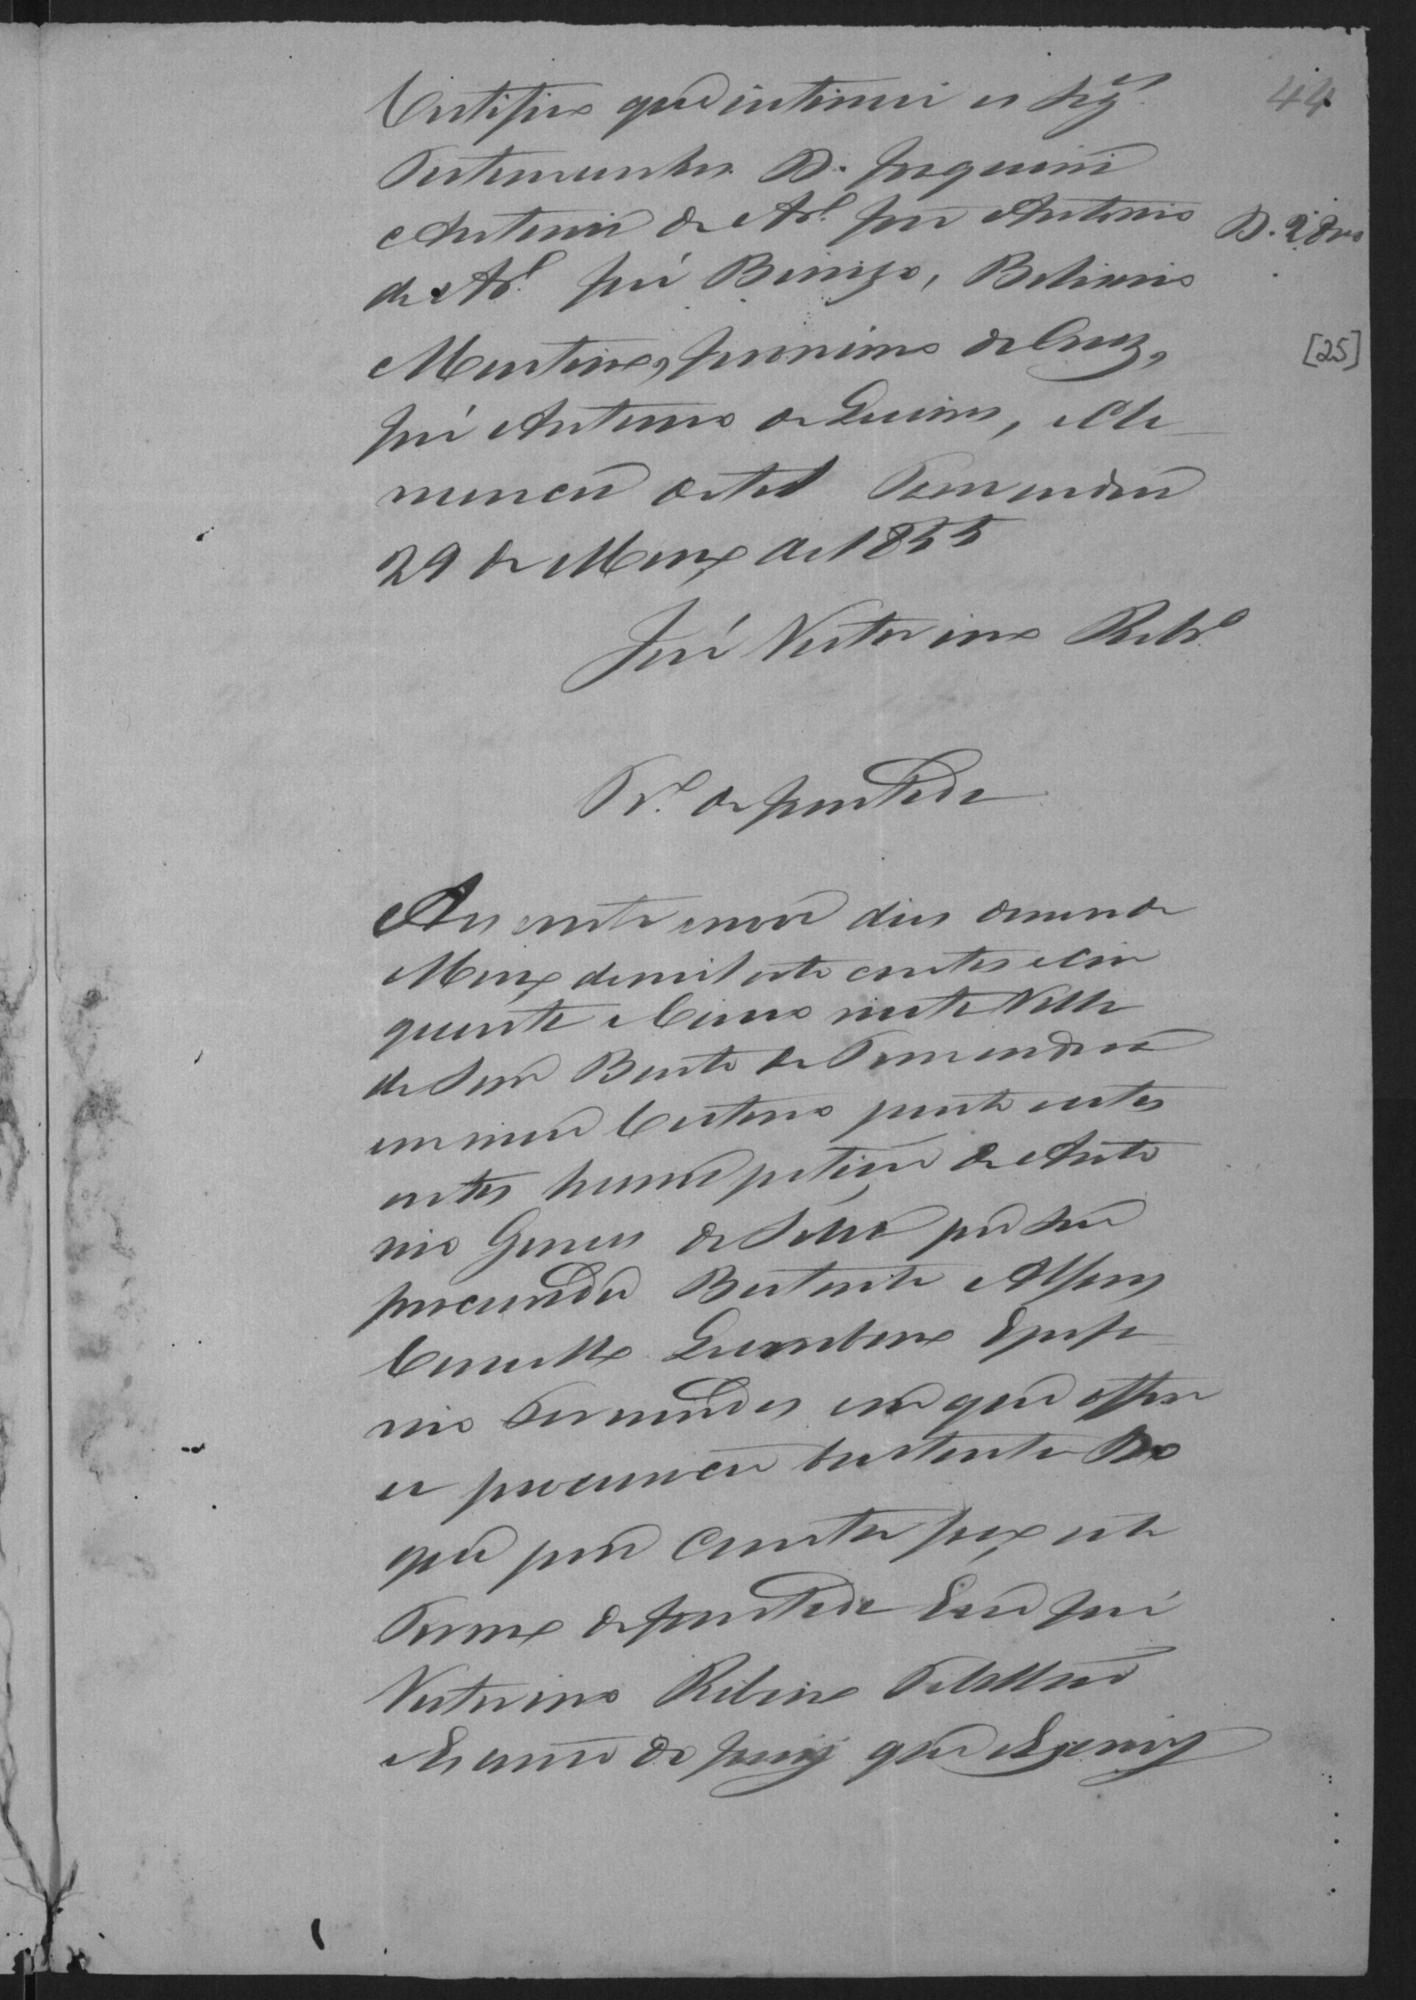 44
Certifico que intimei as seg.es
Testemunhas D. Joaquina
Antonia de Ar.o José Antonio
de Ar.o José Bonizo, Belisario
D. 2
[25]
Martins, Jeronimo da Cruz,
José Antonio de Lemos, e
nuncia do tal Tamanduá
29 de Março de 1855
José Victorino Rib.ro
Tr.o de juntada
Aos vinte e nove dias do mes de
Março de mil oito centos e cin
quenta e cinco nesta Villa
de Sam Bento de Tamanduá
em meu Cartorio junto a estes
autos huma petição de Anto
nio Gomes da Silva por seu
procurador Bastante Alferes
Camillo Epifa
nio Fernandes em que offere
ce procuração bastante Do
que para constar fiz este
Termo de juntada Eu José
Victorino Ribeiro Tabelliao
Escrivão de que Escrevy